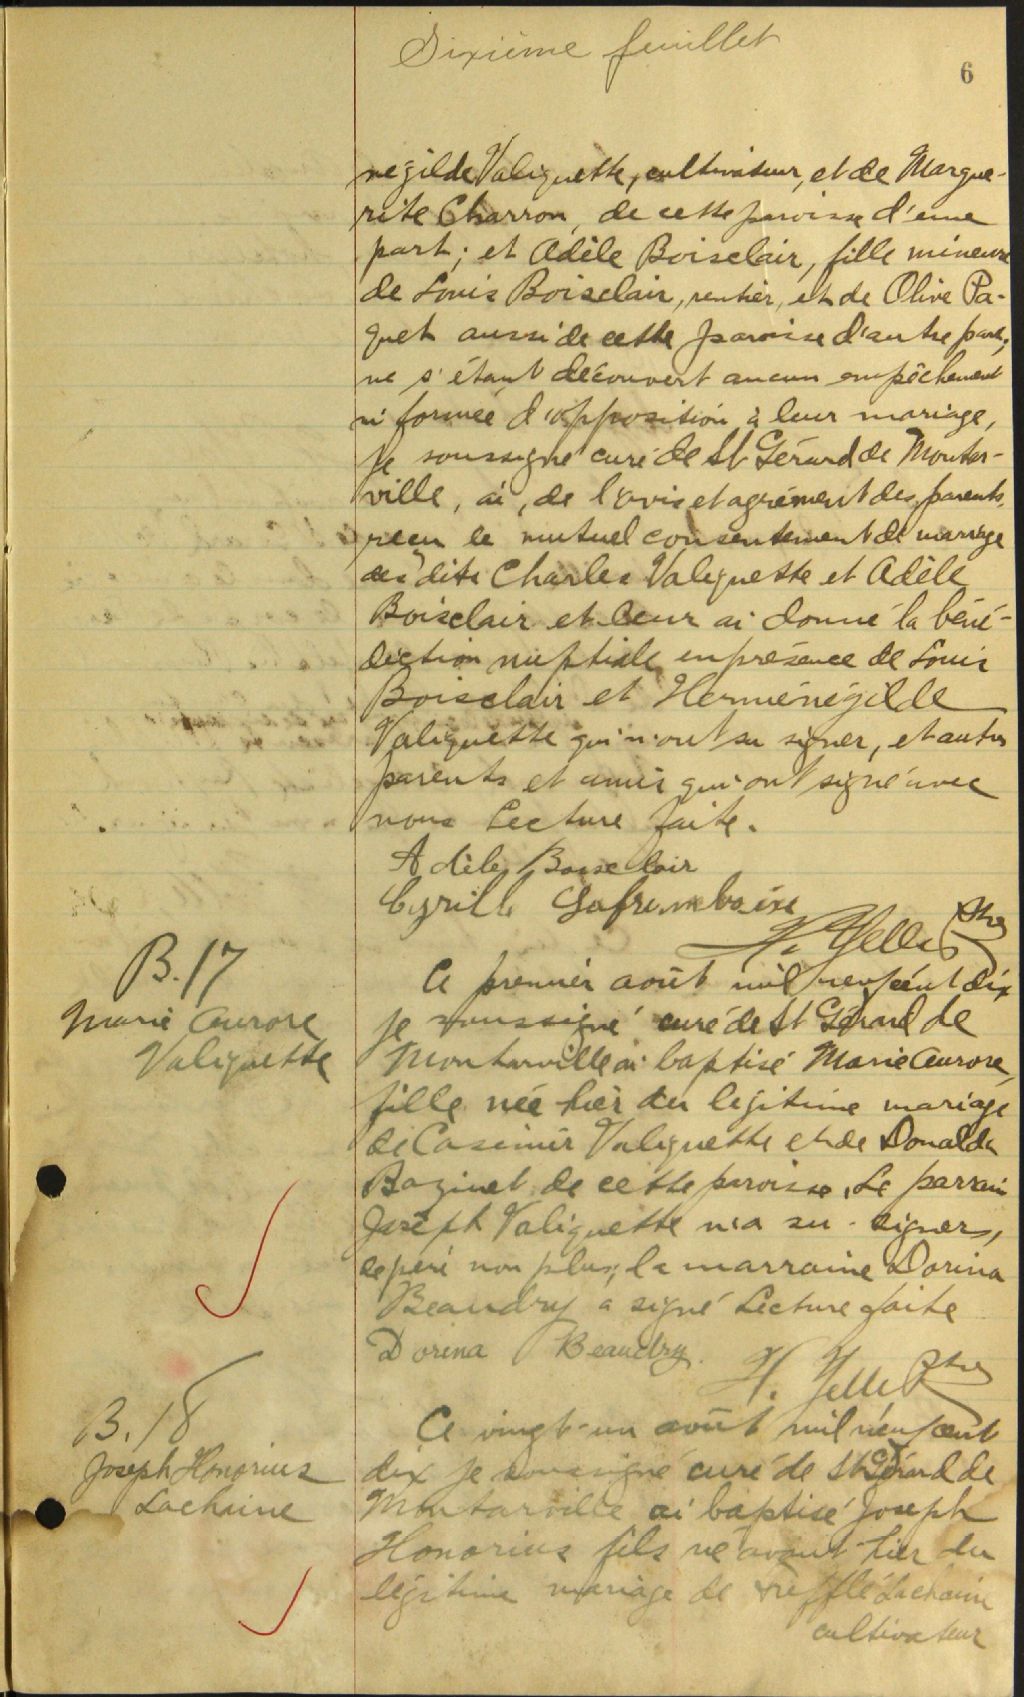 Sixième feuillet
6
négilde Valiquette, cultivateur, et de Margue-
rite Charron, de cette paroisse d'une
part; et Adèle Boisclair, fille mineure
de Louis Boisclair, rentier, et de Olive Pa-
quet aussi de cette paroisse d'autre part;
ne s'étant découvert aucun empêchement
ni formée d'opposition à leur mariage,
je soussigné curé de St Gérard de Montar-
ville, ai, de l'avis et agrément des parents,
reçu le mutuel consentement de mariage
des dits Charles Valiquette et Adèle
Boisclair et leur ai donné la béné-
diction nuptiale en présence de Louis
Boisclair et Herménégilde
Valiquette qui n'ont su signer, et autres
parents et amis qui ont signé avec
nous Lecture faite.
Adèle Boisclair
Cyrille Laframboise
Ptre
B.17
Marie Aurore
Valiquette
Ce premier août mil neuf cent dix
je soussigné curé de St Gérard de
Montarville ai baptisé Marie Aurore,
fille née hier du légitime mariage
de Casimir Valiquette et de Donalda
Bazinet de cette paroisse. Le parrain
Joseph Valiquette n'a su signer,
le père non plus, la marraine Dorina
Beaudry a signé Lecture faite
Dorina Beaudry.
Ptre
B.18
Joseph Honorius
Lachaine
Ce vingt-un août mil neuf cent
dix je soussigné curé de St Gérard de
Montarville ai baptisé Joseph
Honorius fils né avant hier du
légitime mariage de Trefflé Lachaine
cultivateur